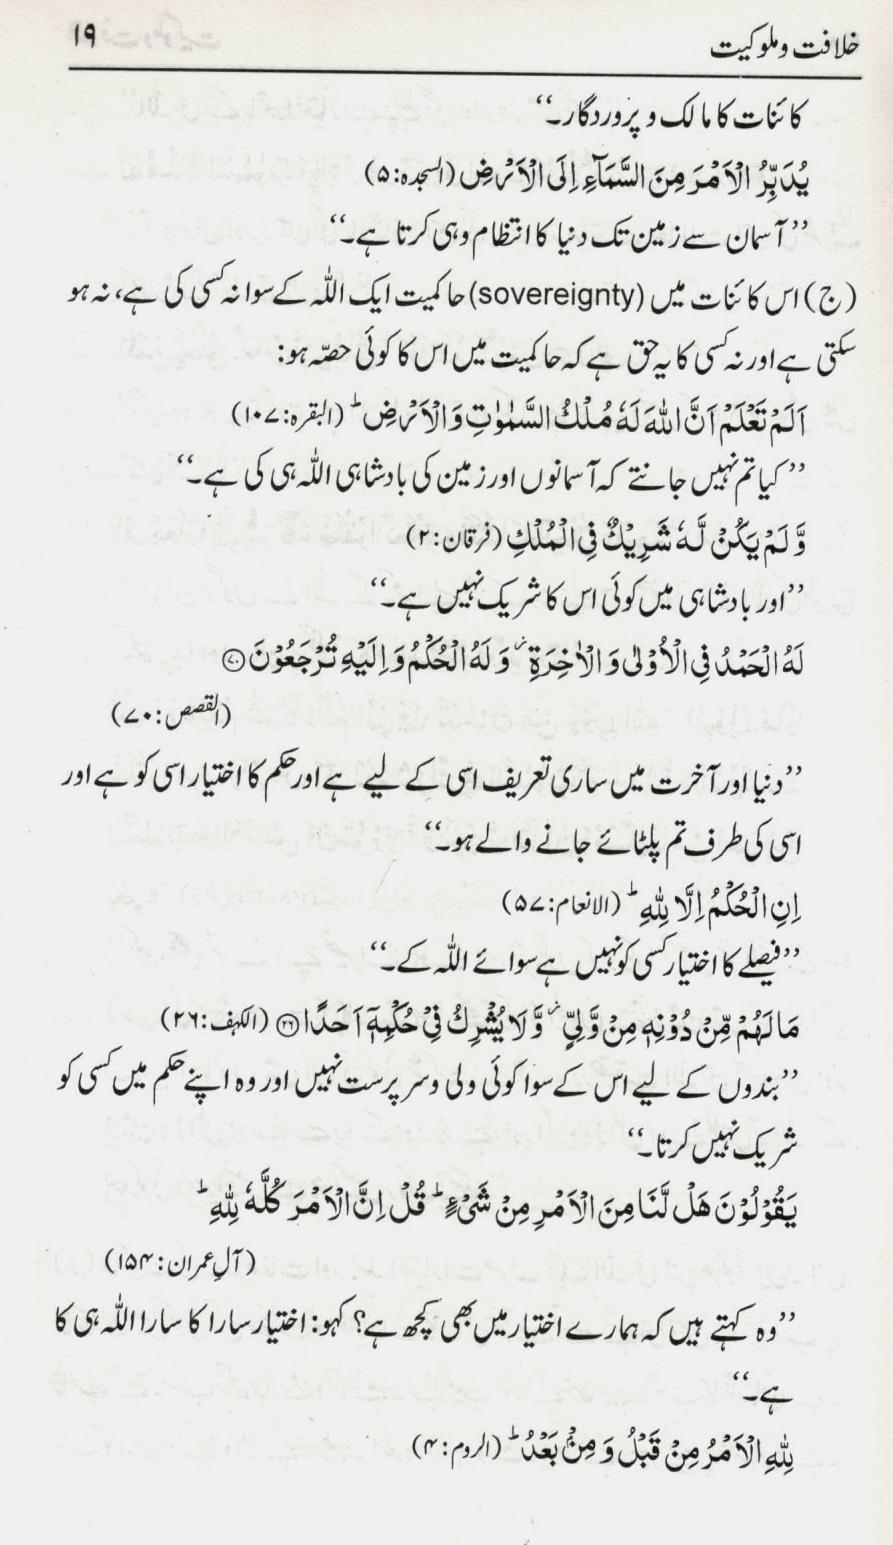 خلافت و ملوکیت ۱۹
کائنات کا مالک و پروردگار۔‘‘
یُدَبِّرُ الْاَمْرَ مِنَ السَّمَآءِ اِلَی الْاَرْضِ (السجدہ: ۵)
’’آسمان سے زمین تک دنیا کا انتظام وہی کرتا ہے۔‘‘
(ج) اس کائنات میں (sovereignty) حاکمیت ایک اللہ کے سوا نہ کسی کی ہے، نہ ہو
سکتی ہے اور نہ کسی کا یہ حق ہے کہ حاکمیت میں اس کا کوئی حصّہ ہو:
اَلَمْ تَعْلَمْ اَنَّ اللّٰهَ لَهٗ مُلْكُ السَّمٰوٰتِ وَالْاَرْضِ ؕ (البقرہ: ۱۰۷)
’’کیا تم نہیں جانتے کہ آسمانوں اور زمین کی بادشاہی اللہ ہی کی ہے۔‘‘
وَّ لَمْ يَكُنْ لَّهٗ شَرِيْكٌ فِي الْمُلْكِ (فرقان: ۲)
’’اور بادشاہی میں کوئی اس کا شریک نہیں ہے۔‘‘
لَهُ الْحَمْدُ فِي الْاُوْلٰى وَ الْاٰخِرَةِ ؗ وَ لَهُ الْحُكْمُ وَ اِلَيْهِ تُرْجَعُوْنَ ﴿۷۰﴾
(القصص: ۷۰)
’’دنیا اور آخرت میں ساری تعریف اسی کے لیے ہے اور حکم کا اختیار اسی کو ہے اور
اسی کی طرف تم پلٹائے جانے والے ہو۔‘‘
اِنِ الْحُكْمُ اِلَّا لِلّٰهِ ؕ (الانعام: ۵۷)
’’فیصلے کا اختیار کسی کو نہیں ہے سوائے اللہ کے۔‘‘
مَا لَهُمْ مِّنْ دُوْنِهٖ مِنْ وَّلِيٍّ ؗ وَّ لَا يُشْرِكُ فِيْ حُكْمِهٖۤ اَحَدًا ﴿۲۶﴾ (الکہف: ۲۶)
’’بندوں کے لیے اس کے سوا کوئی ولی و سرپرست نہیں اور وہ اپنے حکم میں کسی کو
شریک نہیں کرتا۔‘‘
يَقُوْلُوْنَ هَلْ لَّنَا مِنَ الْاَمْرِ مِنْ شَيْءٍ ؕ قُلْ اِنَّ الْاَمْرَ كُلَّهٗ لِلّٰهِ ؕ
(آلِ عمران: ۱۵۴)
’’وہ کہتے ہیں کہ ہمارے اختیار میں بھی کچھ ہے؟ کہو: اختیار سارا کا سارا اللہ ہی کا
ہے۔‘‘
لِلّٰهِ الْاَمْرُ مِنْ قَبْلُ وَ مِنْۢ بَعْدُ ؕ (الروم: ۴)